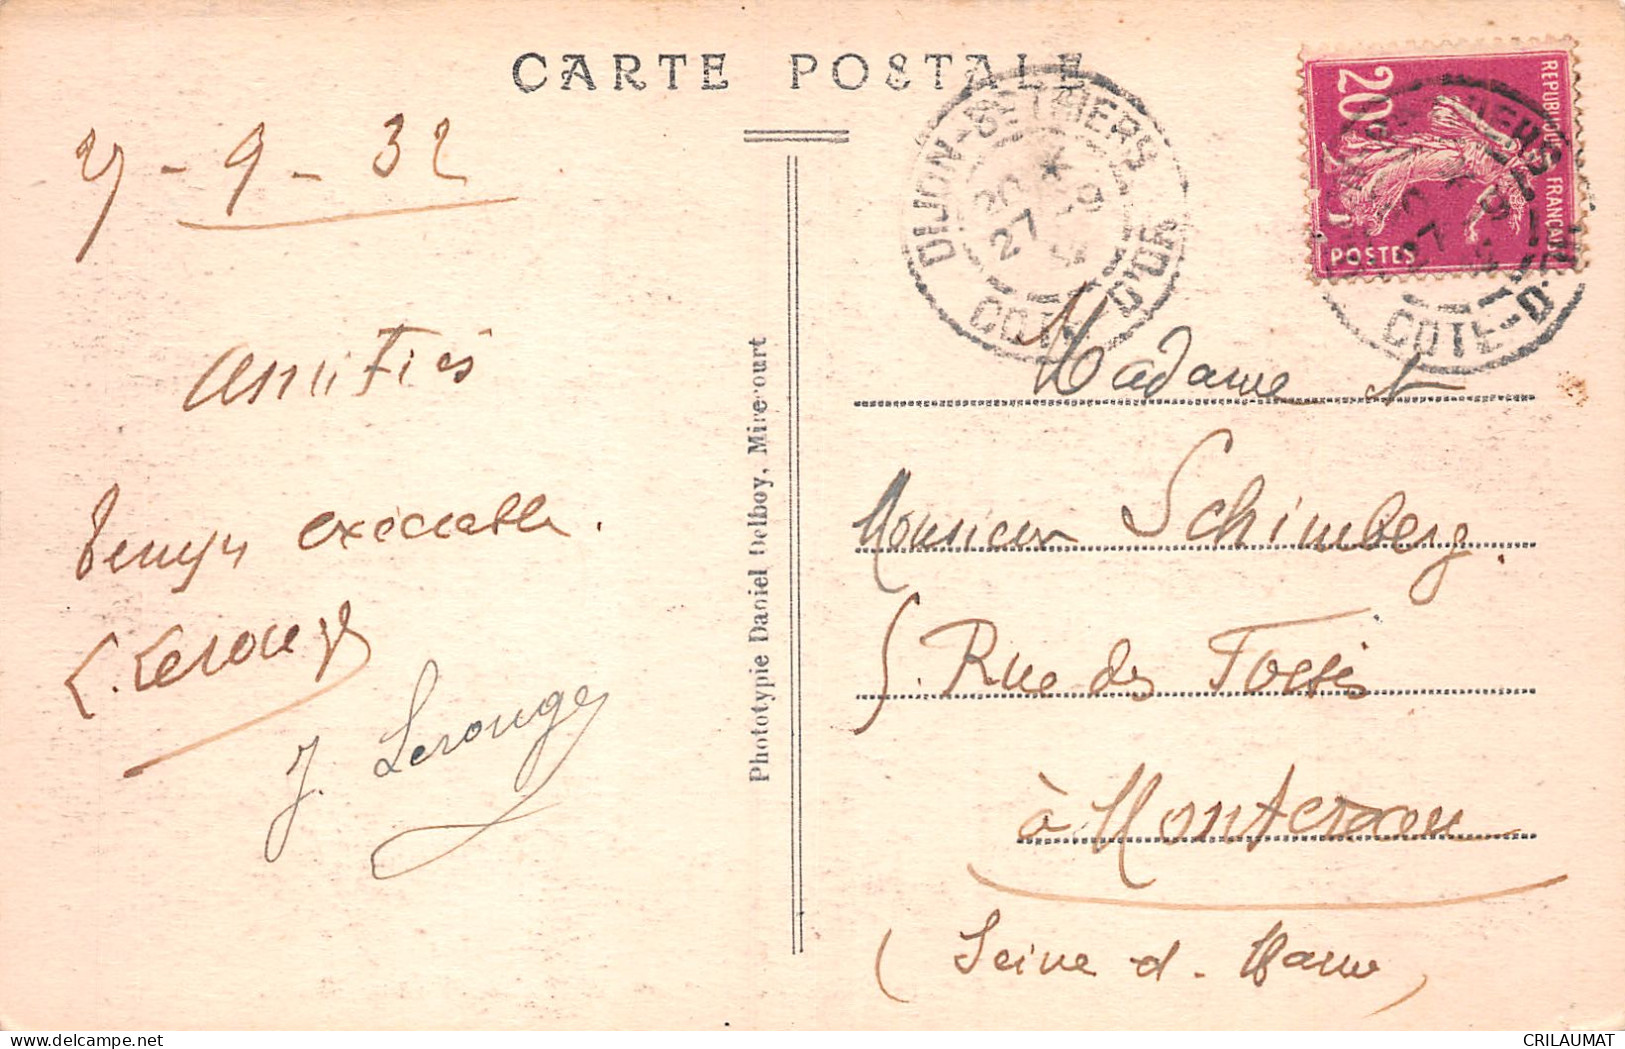 CARTE POSTALE
27 - 9 - 32
amitiés
Temps exécrable.
L. Lerouge
J. Lerouge
Phototypie Daniel Delboy, Mirecourt
DIJON-St THIERS
20
27 - 9
COTE-D'OR
20
REPUBLIQUE FRANÇAISE
POSTES
COTE-D'OR
Madame &
Monsieur Schimberg.
5. Rue des Fossés
à Montereau
(Seine et Marne)
CRILAUMAT